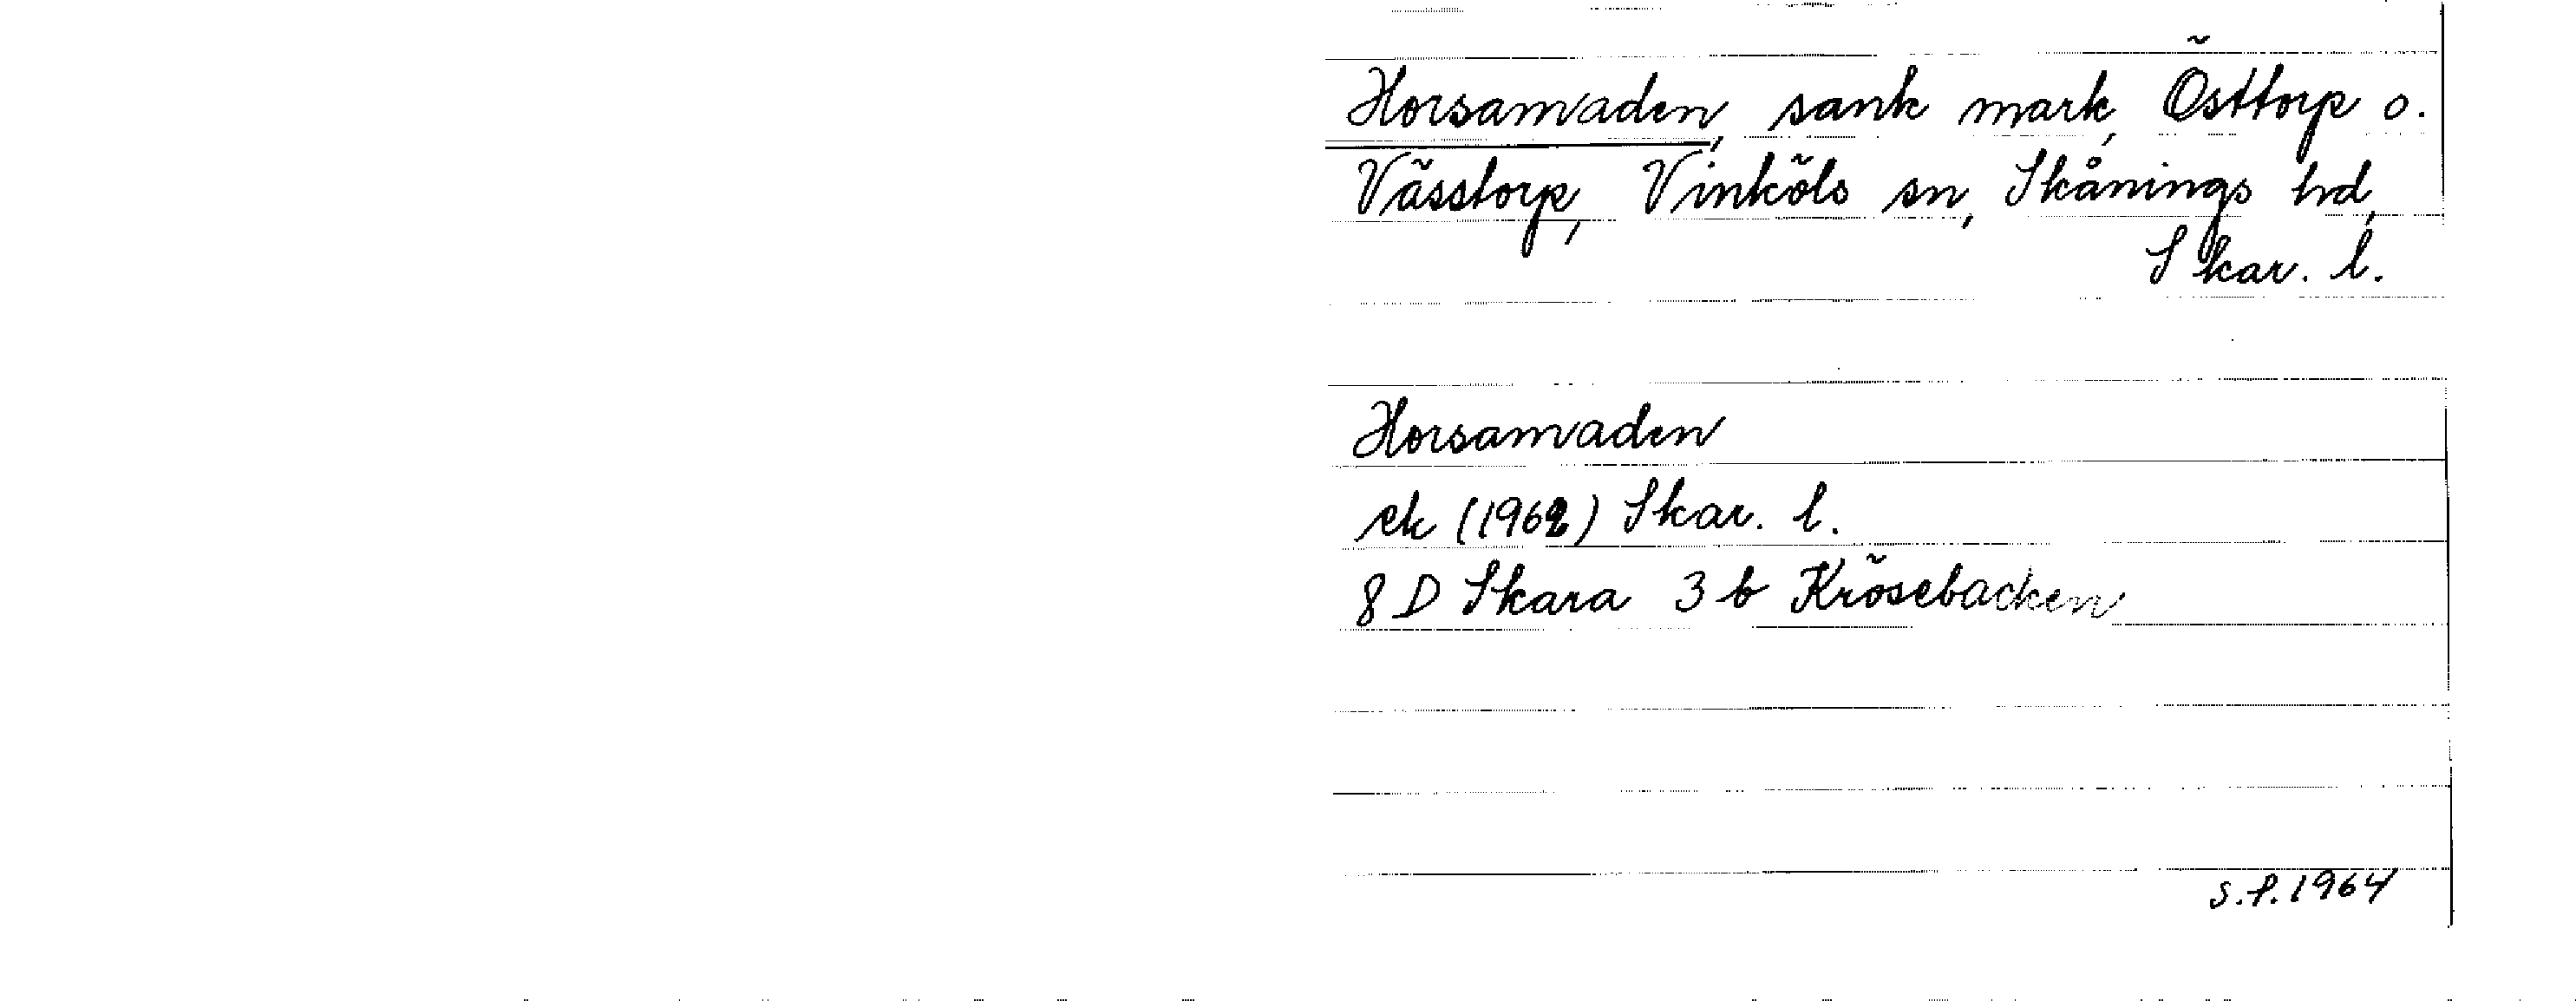 Horsamaden, sank mark, Östtorp o.
Vässtorp, Vinköls sn, Skånings hd,
Skar. l.
Horsamaden
ek (1962) Skar. l.
8 D Skara 3 b Krösebacken
S.P. 1964